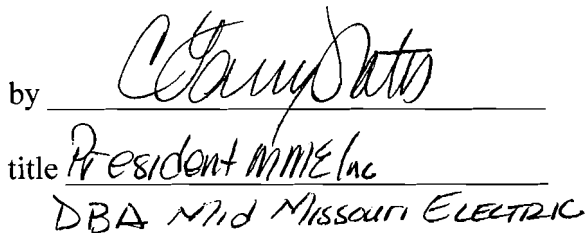 by
title President MME Inc
DBA Mid Missouri ELECTRIC